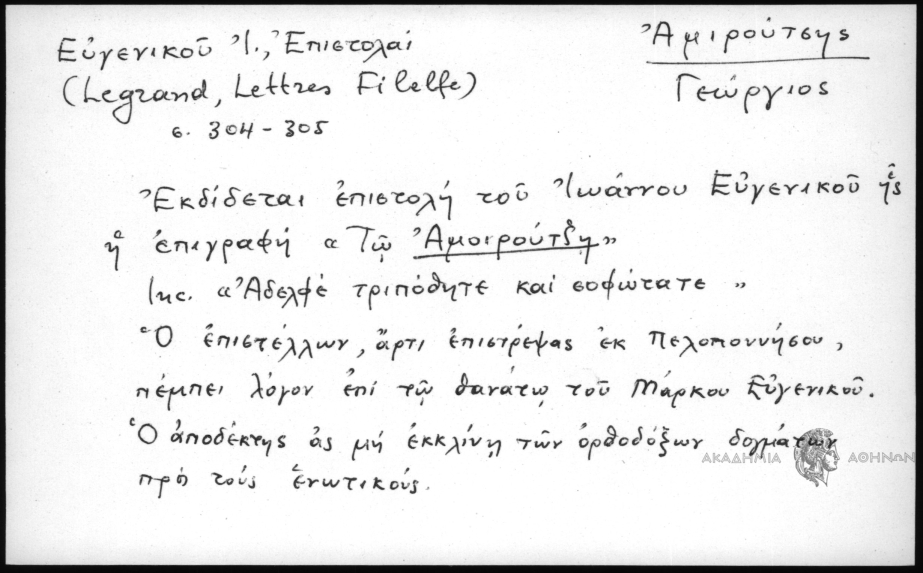 Εὐγενικοῦ Ἰ., Ἐπιστολαί
(Legrand, Lettres Filelfe)
σ. 304-305
Ἀμιρούτσης
Γεώργιος
Ἐκδίδεται ἐπιστολή τοῦ Ἰωάννου Εὐγενικοῦ ἧς
ἡ ἐπιγραφή « Τῷ Ἀμοιρούτζῃ »
Inc. « Ἀδελφέ τριπόθητε καί σοφώτατε »
Ὁ ἐπιστέλλων, ἄρτι ἐπιστρέψας ἐκ Πελοποννήσου,
πέμπει λόγον ἐπί τῷ θανάτῳ τοῦ Μάρκου Εὐγενικοῦ.
Ὁ ἀποδέκτης ἄς μή ἐκκλίνῃ τῶν ὀρθοδόξων δογμάτων
πρός τούς ἑνωτικούς.
ΑΚΑΔΗΜΙΑ ΑΘΗΝΩΝ